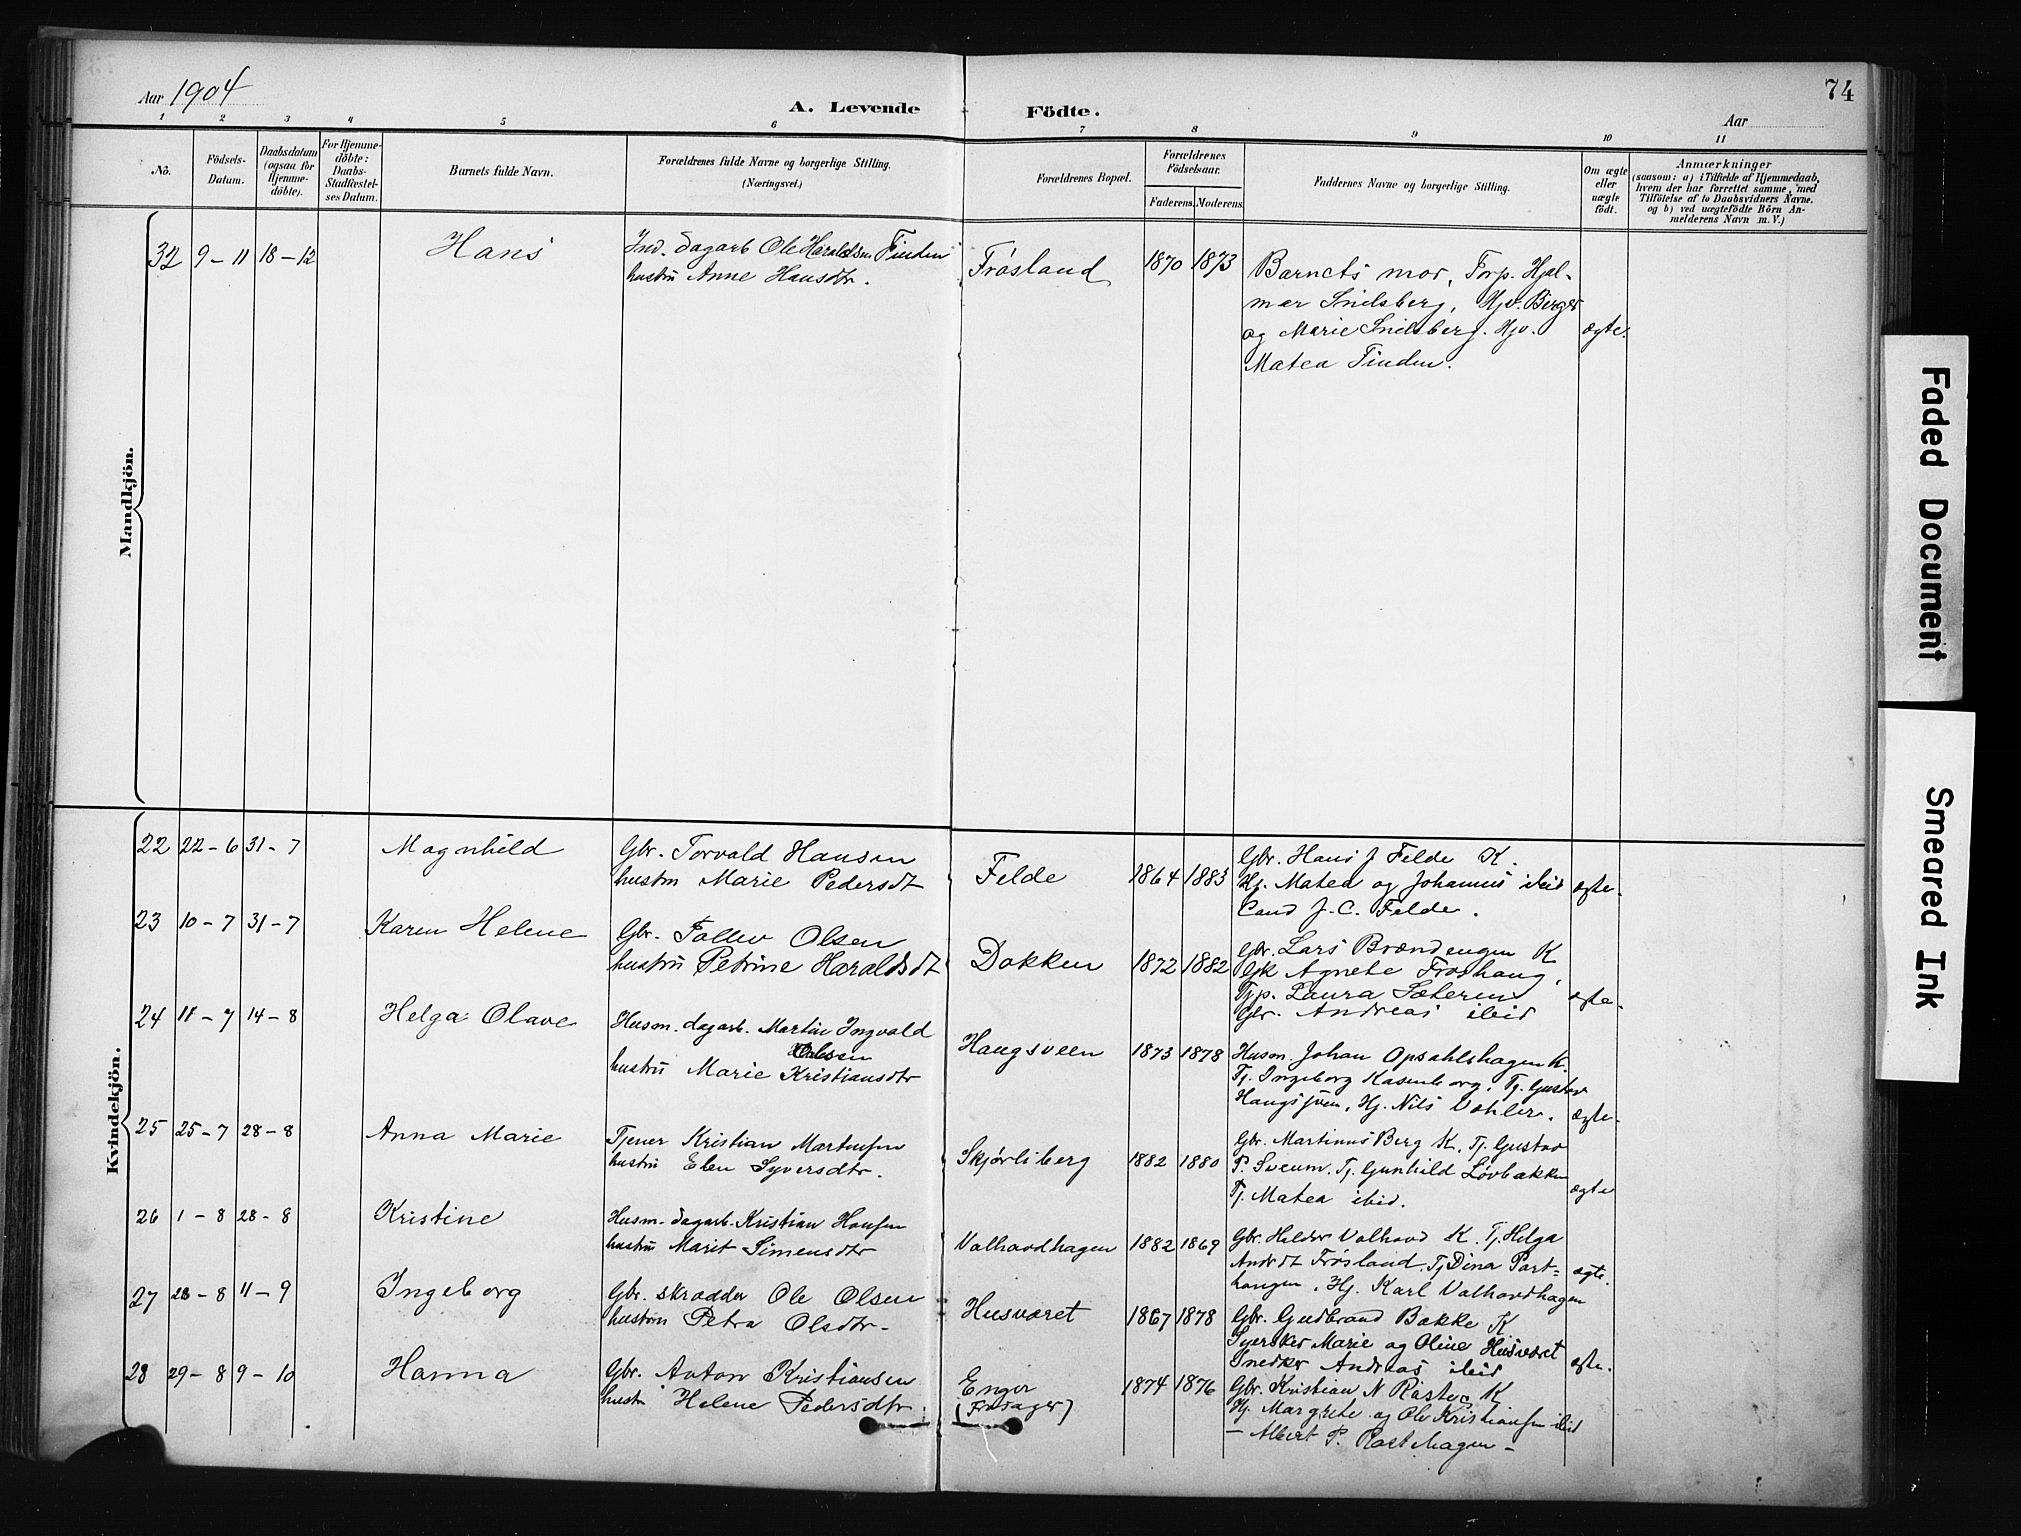 74
Aar 1904
A. Levende Födte.
Aar
1 2 3 4 5 6 7 8 9 10 11
No.
Födsels-
Datum.
Daabsdatum
(ogsaa for
Hjemme-
döbte).
For Hjemme-
döbte:
Daabs-
Stadfæstel-
ses Datum.
Barnets fulde Navn.
Forældrenes fulde Navne og borgerlige Stilling.
(Næringsvei.)
Forældrenes Bopæl.
Forældrenes
Födselsaar.
Faderens. Moderens.
Faddernes Navne og borgerlige Stilling.
Om ægte
eller
uægte
födt.
Anmærkninger
(saasom: a) i Tilfælde af Hjemmedaab,
hvem der har forrettet samme, med
Tilföielse af to Daabsvidners Navne.
og b) ved uægtefödte Börn An-
melderens Navn m. V.)
Mandkjön.
32 9-11 18-12 Hans
Ind. dagarb Ole Haraldsen Finden
hustru Anne Hansdtr.
Frøsland 1870 1873
Barnets mor, Torp. Hjal-
mar Snilsberg, Hjv. Birger
og Marie Snilsberg. Hjv.
Matea Finden.
ægte.
Kvindekjön.
22 22-6 31-7 Magnhild
Gbr. Torvald Hansen
hustru Marie Pedersdt
Felde 1864 1883
Gbr. Hans J Felde K.
Hj. Matea og Johannes ibid
Cand J. C. Felde.
ægte.
23 10-7 31-7 Karen Helene
Gbr. Tollev Olsen
hustru Petrine Haraldsdt
Dokken 1872 1882
Gbr. Lars Brændengen K
Gjk Agnete Frøshaug,
Tjp. Laura Sæterin
Gbr. Andreas ibid
ægte.
24 11-7 14-8 Helga Olave
Husm. dagarb. Martin Ingvald
Olsen
hustru Marie Kristiansdtr
Haugsveen 1873 1878
Husm. Johan Opsahlshagen K.
Tj. Ingeborg Kasenborg. Tj. Gustav
Haugsveen, Hj. Nils Vøhler.
ægte.
25 25-7 28-8 Anna Marie
Tjener Kristian Martinsen
hustru Elen Syversdtr.
Skjørliberg 1882 1880
Gbr. Martinus Berg K. Tj. Gustav
P. Sveum. Tj. Gunhild Løvbakken
Tj. Matea ibid.
ægte
26 1-8 28-8 Kristine
Husm. dagarb. Kristian Hansen
hustru Marit Simensdtr
Valhovdhagen 1882 1869
Gbr. Helder Valhovd K. Tj. Helga
Andr dt Frøsland. Tj Dina Part=
haugen, Hj. Karl Valhovdhagen
ægte.
27 28-8 11-9 Ingeborg
Gbr. skrædder Ole Olsen
hustru Petra Olsdtr.
Husværet 1867 1878
Gbr. Gudbrand Bakke K
Syersker Marie og Oline Husværet
Snedker Andreas ibid
ægte.
28 29-8 9-10 Hanna
Gbr. Anton Kristiansen
hustru Helene Pedersdtr.
Enger
(Frøsager)
1874 1876
Gbr. Kristian N Røste K
Hj. Margrete og Ole Kristiansen ibid
- Albert P. Rostehagen -
Faded Document
Smeared Ink